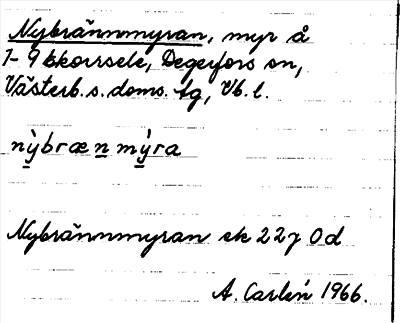 Nybrännmyran, myr å
1-9 Ekorrsele, Degerfors sn,
Västerb. s. doms. tg, Vb. l.
nỳbrænmỳra
Nybrännmyran ek 227 Od
A. Carlén 1966.